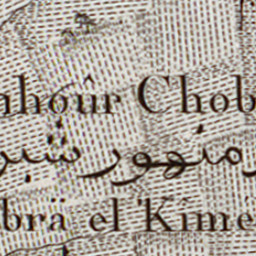 nhoûr Chob
منهور شبر
brä el Kime